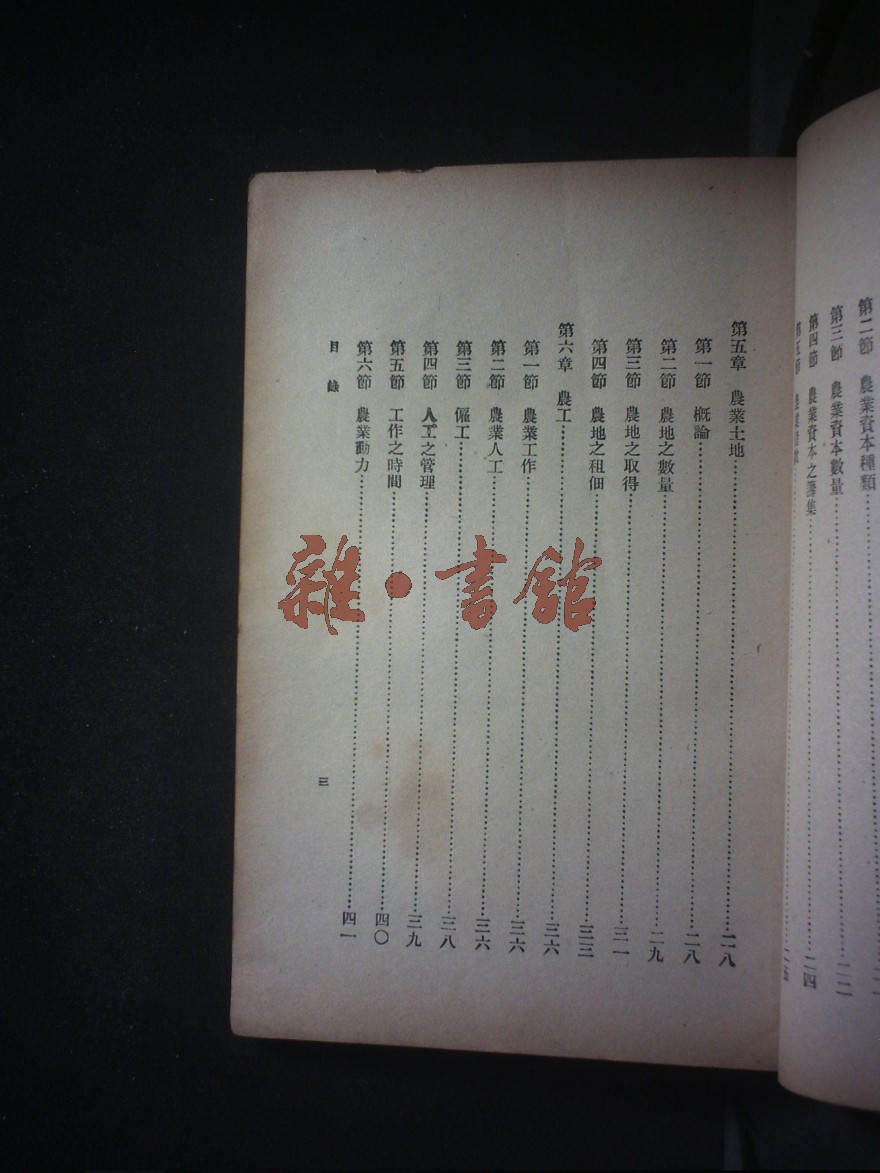 第二節　農業資本種類
第三節　農業資本數量……二二
第四節　農業資本之籌集……二四
第五章　農業土地……二八
第一節　概論……二八
第二節　農地之數量……二九
第三節　農地之取得……三一
第四節　農地之租佃……三三
第六章　農工……三六
第一節　農業工作……三六
第二節　農業人工……三六
第三節　僱工……三八
第四節　人工之管理……三九
第五節　工作之時間……四〇
第六節　農業動力……四一
目錄　三
雜·書館